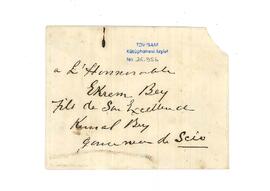 TDV İSAM
Kütüphanesi Arşivi
No
à L'Honnorable
Ekrem Bey
fils de Son Excellence
Kemal Bey
gouverneur de Scio